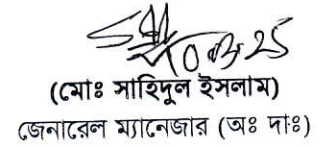 (মোঃ সাহিদুল ইসলাম)
জেনারেল ম্যানেজার (অঃ দাঃ)